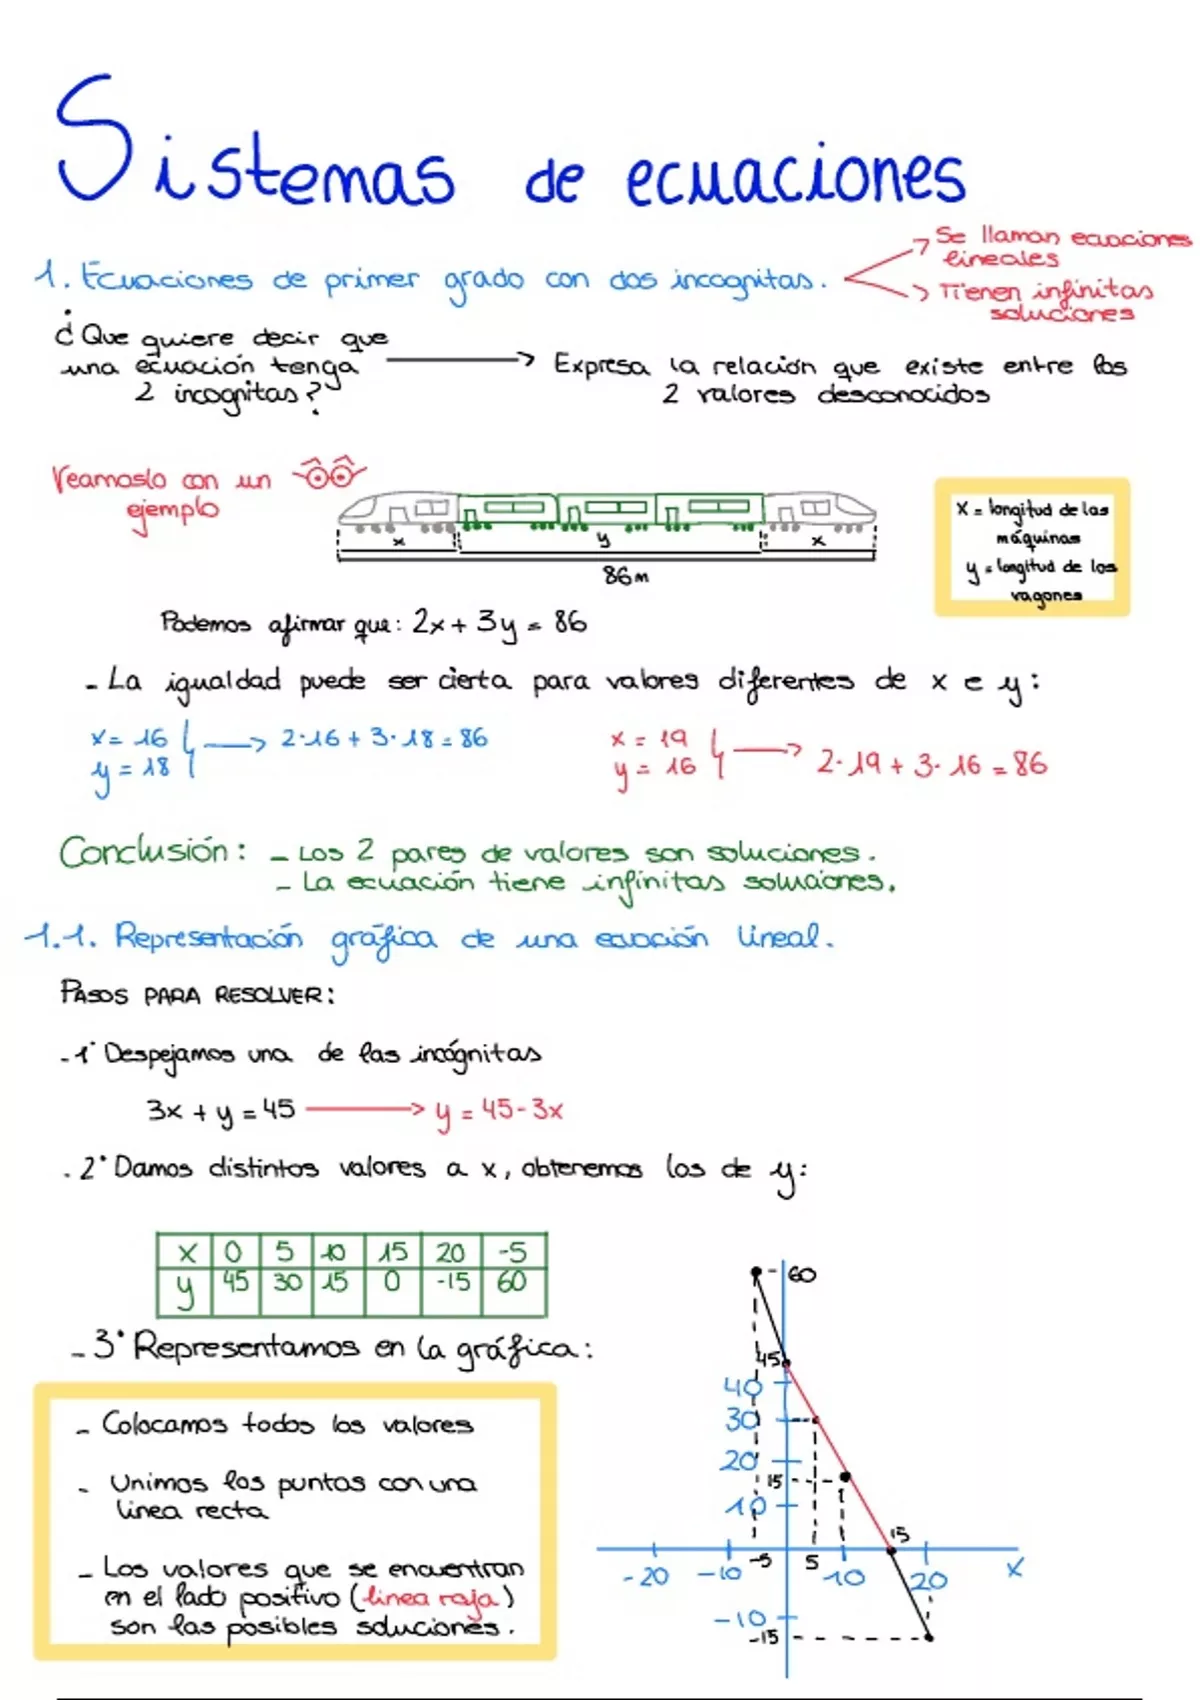 Sistemas de ecuaciones
1. Ecuaciones de primer grado con dos incognitas.
Se llaman ecuaciones
lineales
Tienen infinitas
soluciones
¿Que quiere decir que
una ecuación tenga
2 incognitas?
Expresa la relación que existe entre los
2 valores desconocidos
Veamoslo con un
ejemplo
x y x
86m
x = longitud de las
máquinas
y = longitud de los
vagones
Podemos afirmar que: 2x + 3y = 86
- La igualdad puede ser cierta para valores diferentes de x e y:
x = 16
y = 18
2·16 + 3·18 = 86
x = 19
y = 16
2·19 + 3·16 = 86
Conclusión: - Los 2 pares de valores son soluciones.
- La ecuación tiene infinitas soluciones.
1.1. Representación gráfica de una ecuación lineal.
PASOS PARA RESOLVER:
- 1° Despejamos una de las incógnitas
3x + y = 45 → y = 45-3x
- 2° Damos distintos valores a x, obtenemos los de y:
x 0 5 10 15 20 -5
y 45 30 15 0 -15 60
- 3° Representamos en la gráfica:
- Colocamos todos los valores
- Unimos los puntos con una
linea recta
- Los valores que se encuentran
en el lado positivo (linea roja)
son las posibles soluciones.
60
45
40
30
20
15
10
15
-20 -10 -5 5 10 20 x
-10
-15